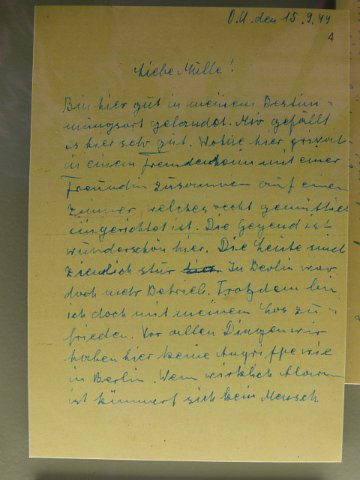 O.U. den 15.9.44
4
Liebe Mülle!
Bin hier gut in meinem Bestim-
mungsort gelandet. Mir gefällt
es hier sehr gut. Wohne hier privat
in einem Fremdenheim mit einer
Freundin zusammen auf einem
Zimmer, welches recht gemütlich
eingerichtet ist. Die Gegend ist
wunderschön hier. Die Leute sind
ziemlich stur hier. In Berlin war
doch mehr Betrieb. Trotzdem bin
ich doch mit meinem Los zu-
frieden. Vor allen Dingen wir
haben hier keine Angriffe wie
in Berlin. Wenn wirklich Alarm
ist kümmert sich kein Mensch